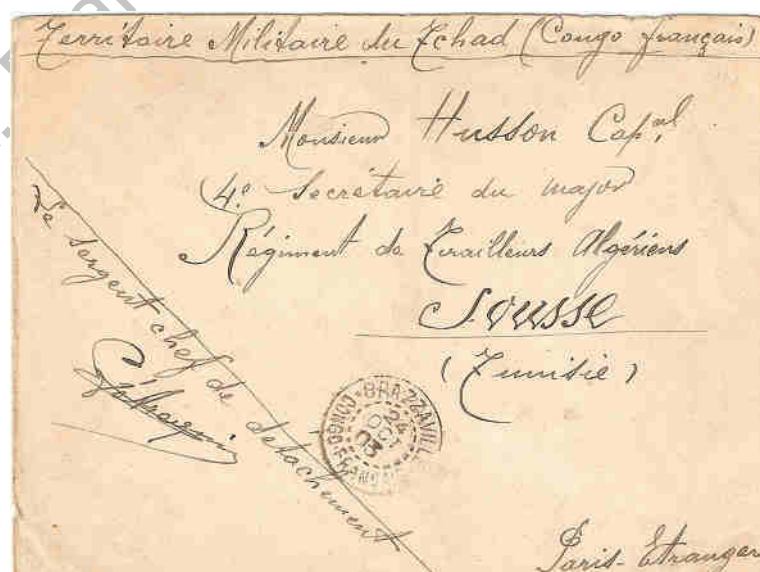 Territoire Militaire du Tchad (Congo français)
Monsieur Husson Cap.al
4e Secrétaire du major
Régiment de Tirailleurs Algériens
Sousse
(Tunisie)
Le sergent chef de détachement
CONGO-BRAZZAVILL
24
OCT
03
FRANÇAI
Paris-Etranger